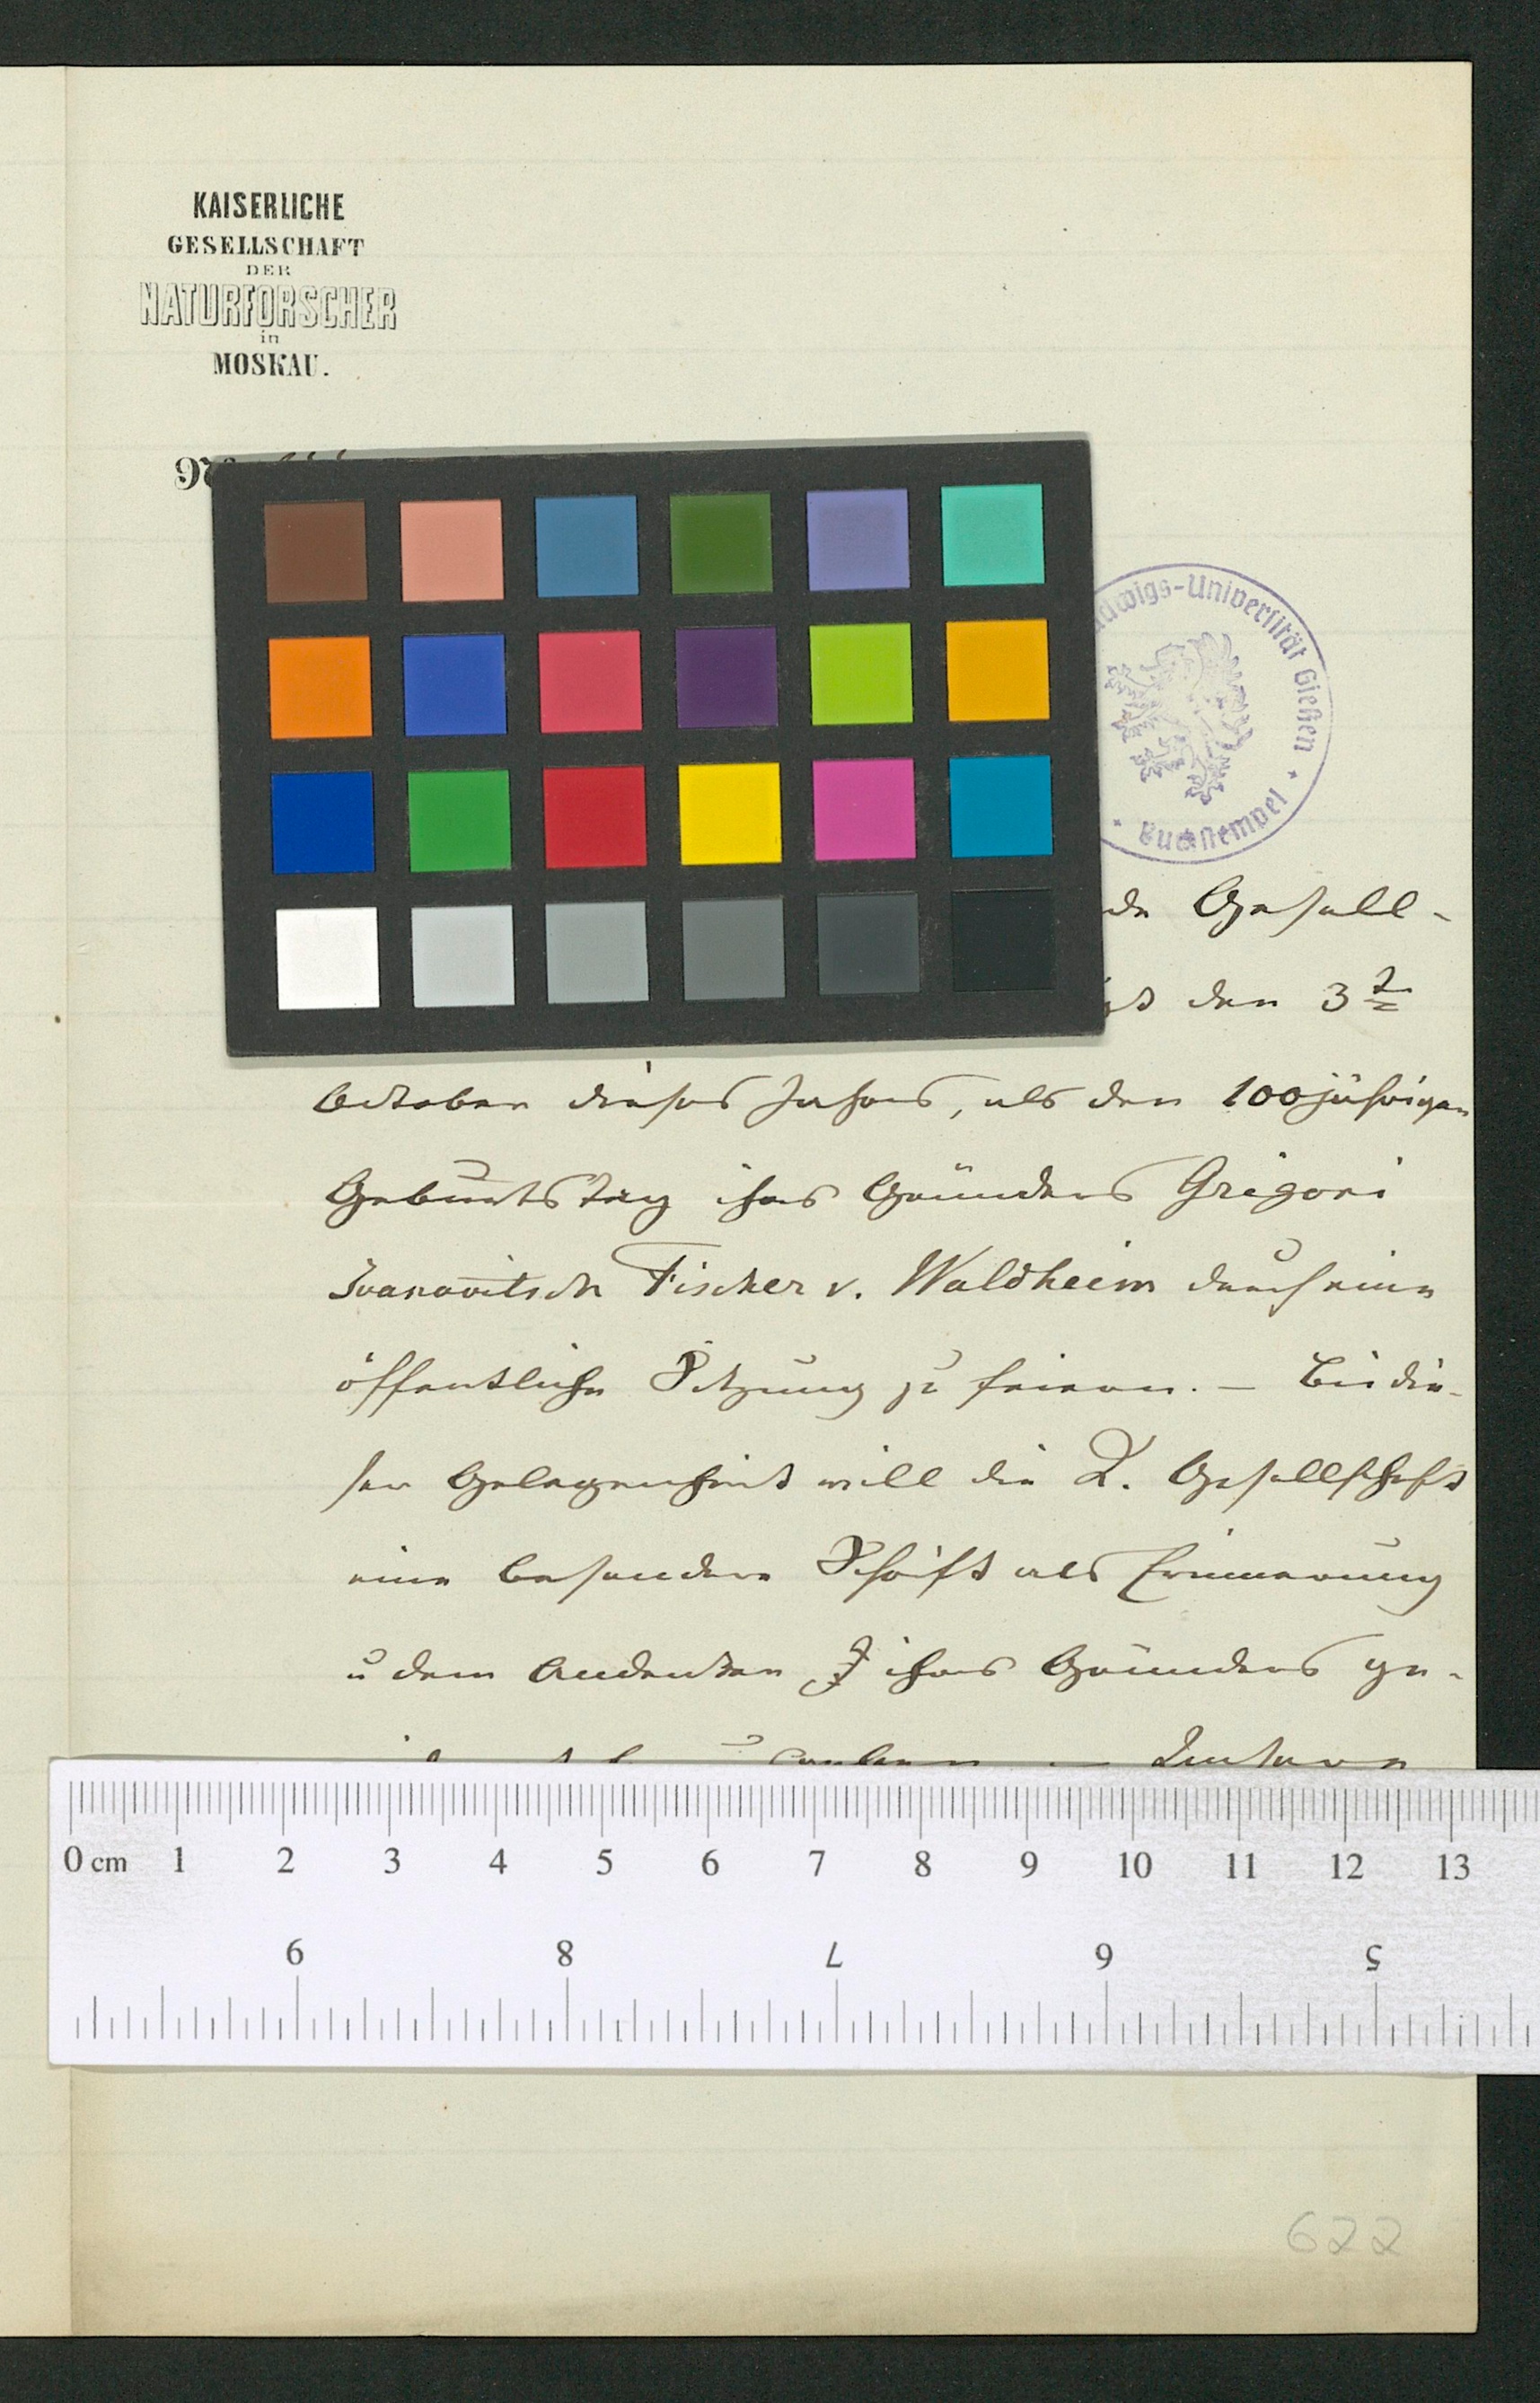 KAISERLICHE
GESELLSCHAFT
DER
NATURFORSCHER
in
MOSKAU.
Universität Gießen
Buchstempel
Gesell-
den 3
October dieses Jahres, als den 100jährigen
Geburtstag ihres Gründers Grigori
Ivanovitsch Fischer v. Waldheim durch eine
öffentliche Sitzung zu feiern. — Bei die-
ser Gelegenheit will die K. Gesellschaft
eine besondere Schrift als Erinnerung
u dem Andenken ihres Gründers ge-
0 cm 1 2 3 4 5 6 7 8 9 10 11 12 13
9 8 7 6 5
622